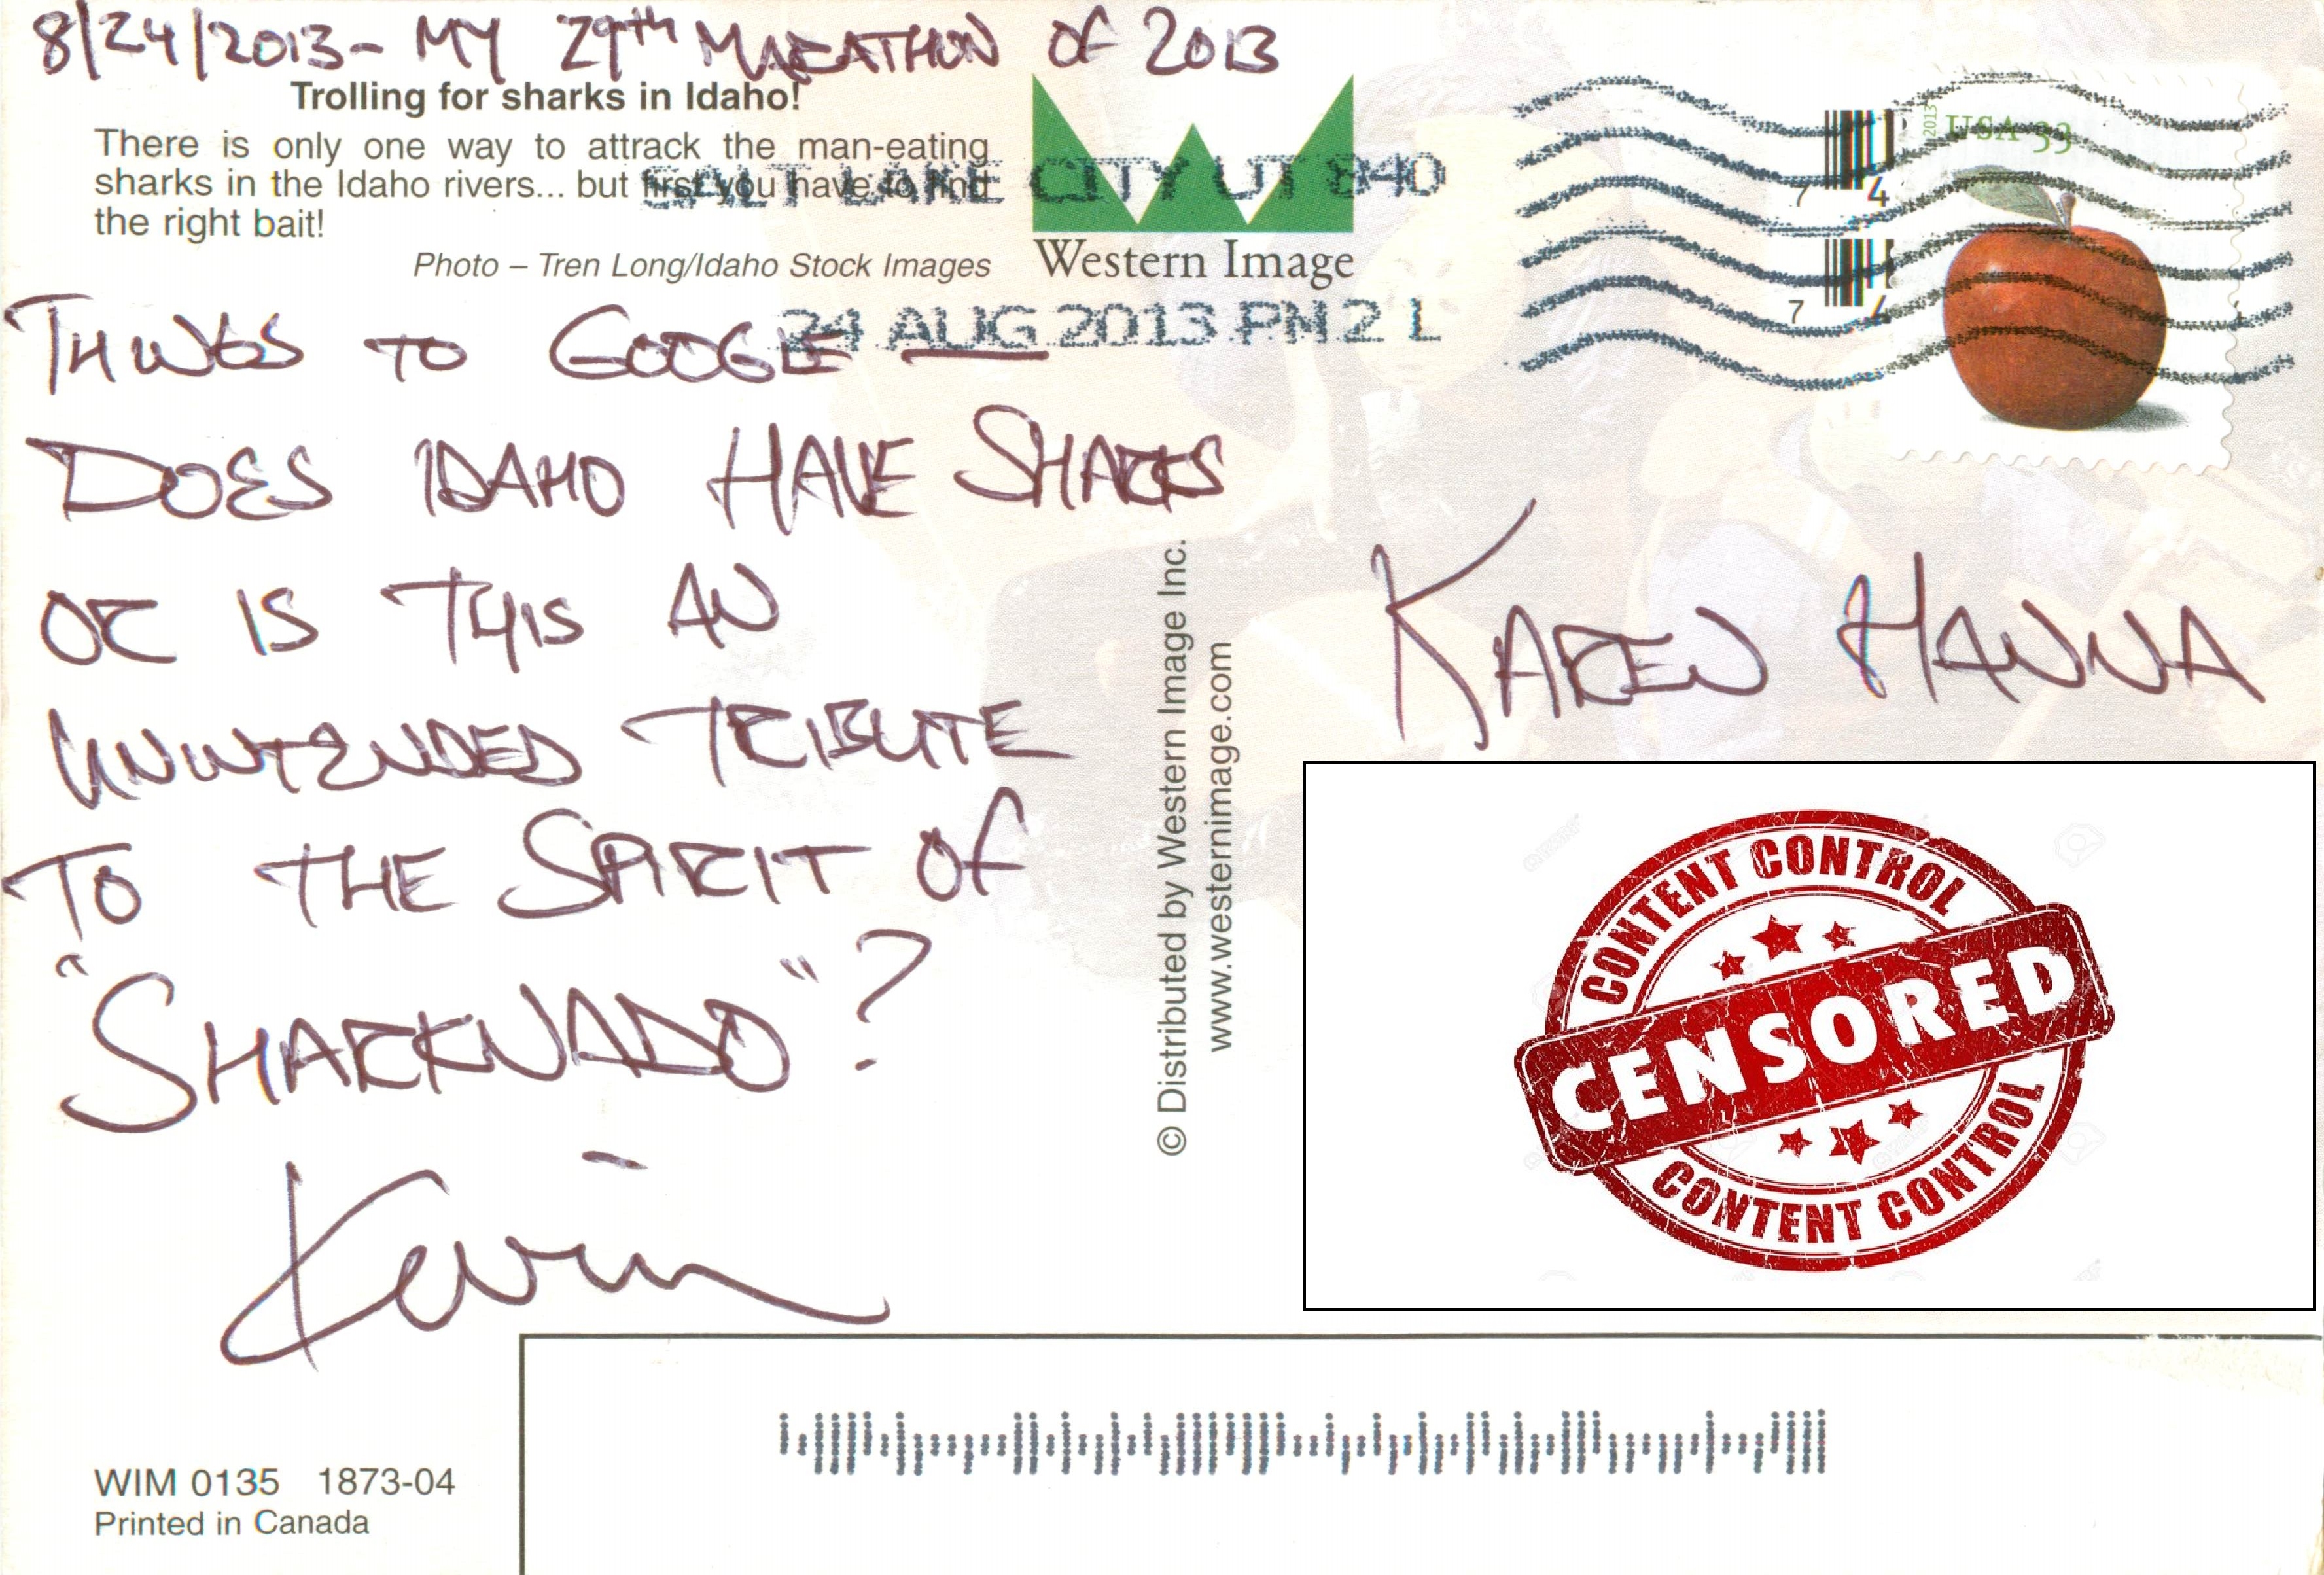 8/24/2013 - MY 29th MARATHON OF 2013
Trolling for sharks in Idaho!
There is only one way to attrack the man-eating
sharks in the Idaho rivers... but first you have to find
the right bait!
Photo – Tren Long/Idaho Stock Images
Western Image
SALT LAKE CITY UT 840
24 AUG 2013 PM 2 L
USA 33
2013
7 4
7 4
THINGS TO GOOGLE —
DOES IDAHO HAVE SHARKS
OR IS THIS AN
UNINTENDED TRIBUTE
TO THE SPIRIT OF
"SHARKNADO"?
Kevin
© Distributed by Western Image Inc.
www.westernimage.com
KAREN HANNA
CONTENT CONTROL
CENSORED
CONTENT CONTROL
WIM 0135 1873-04
Printed in Canada